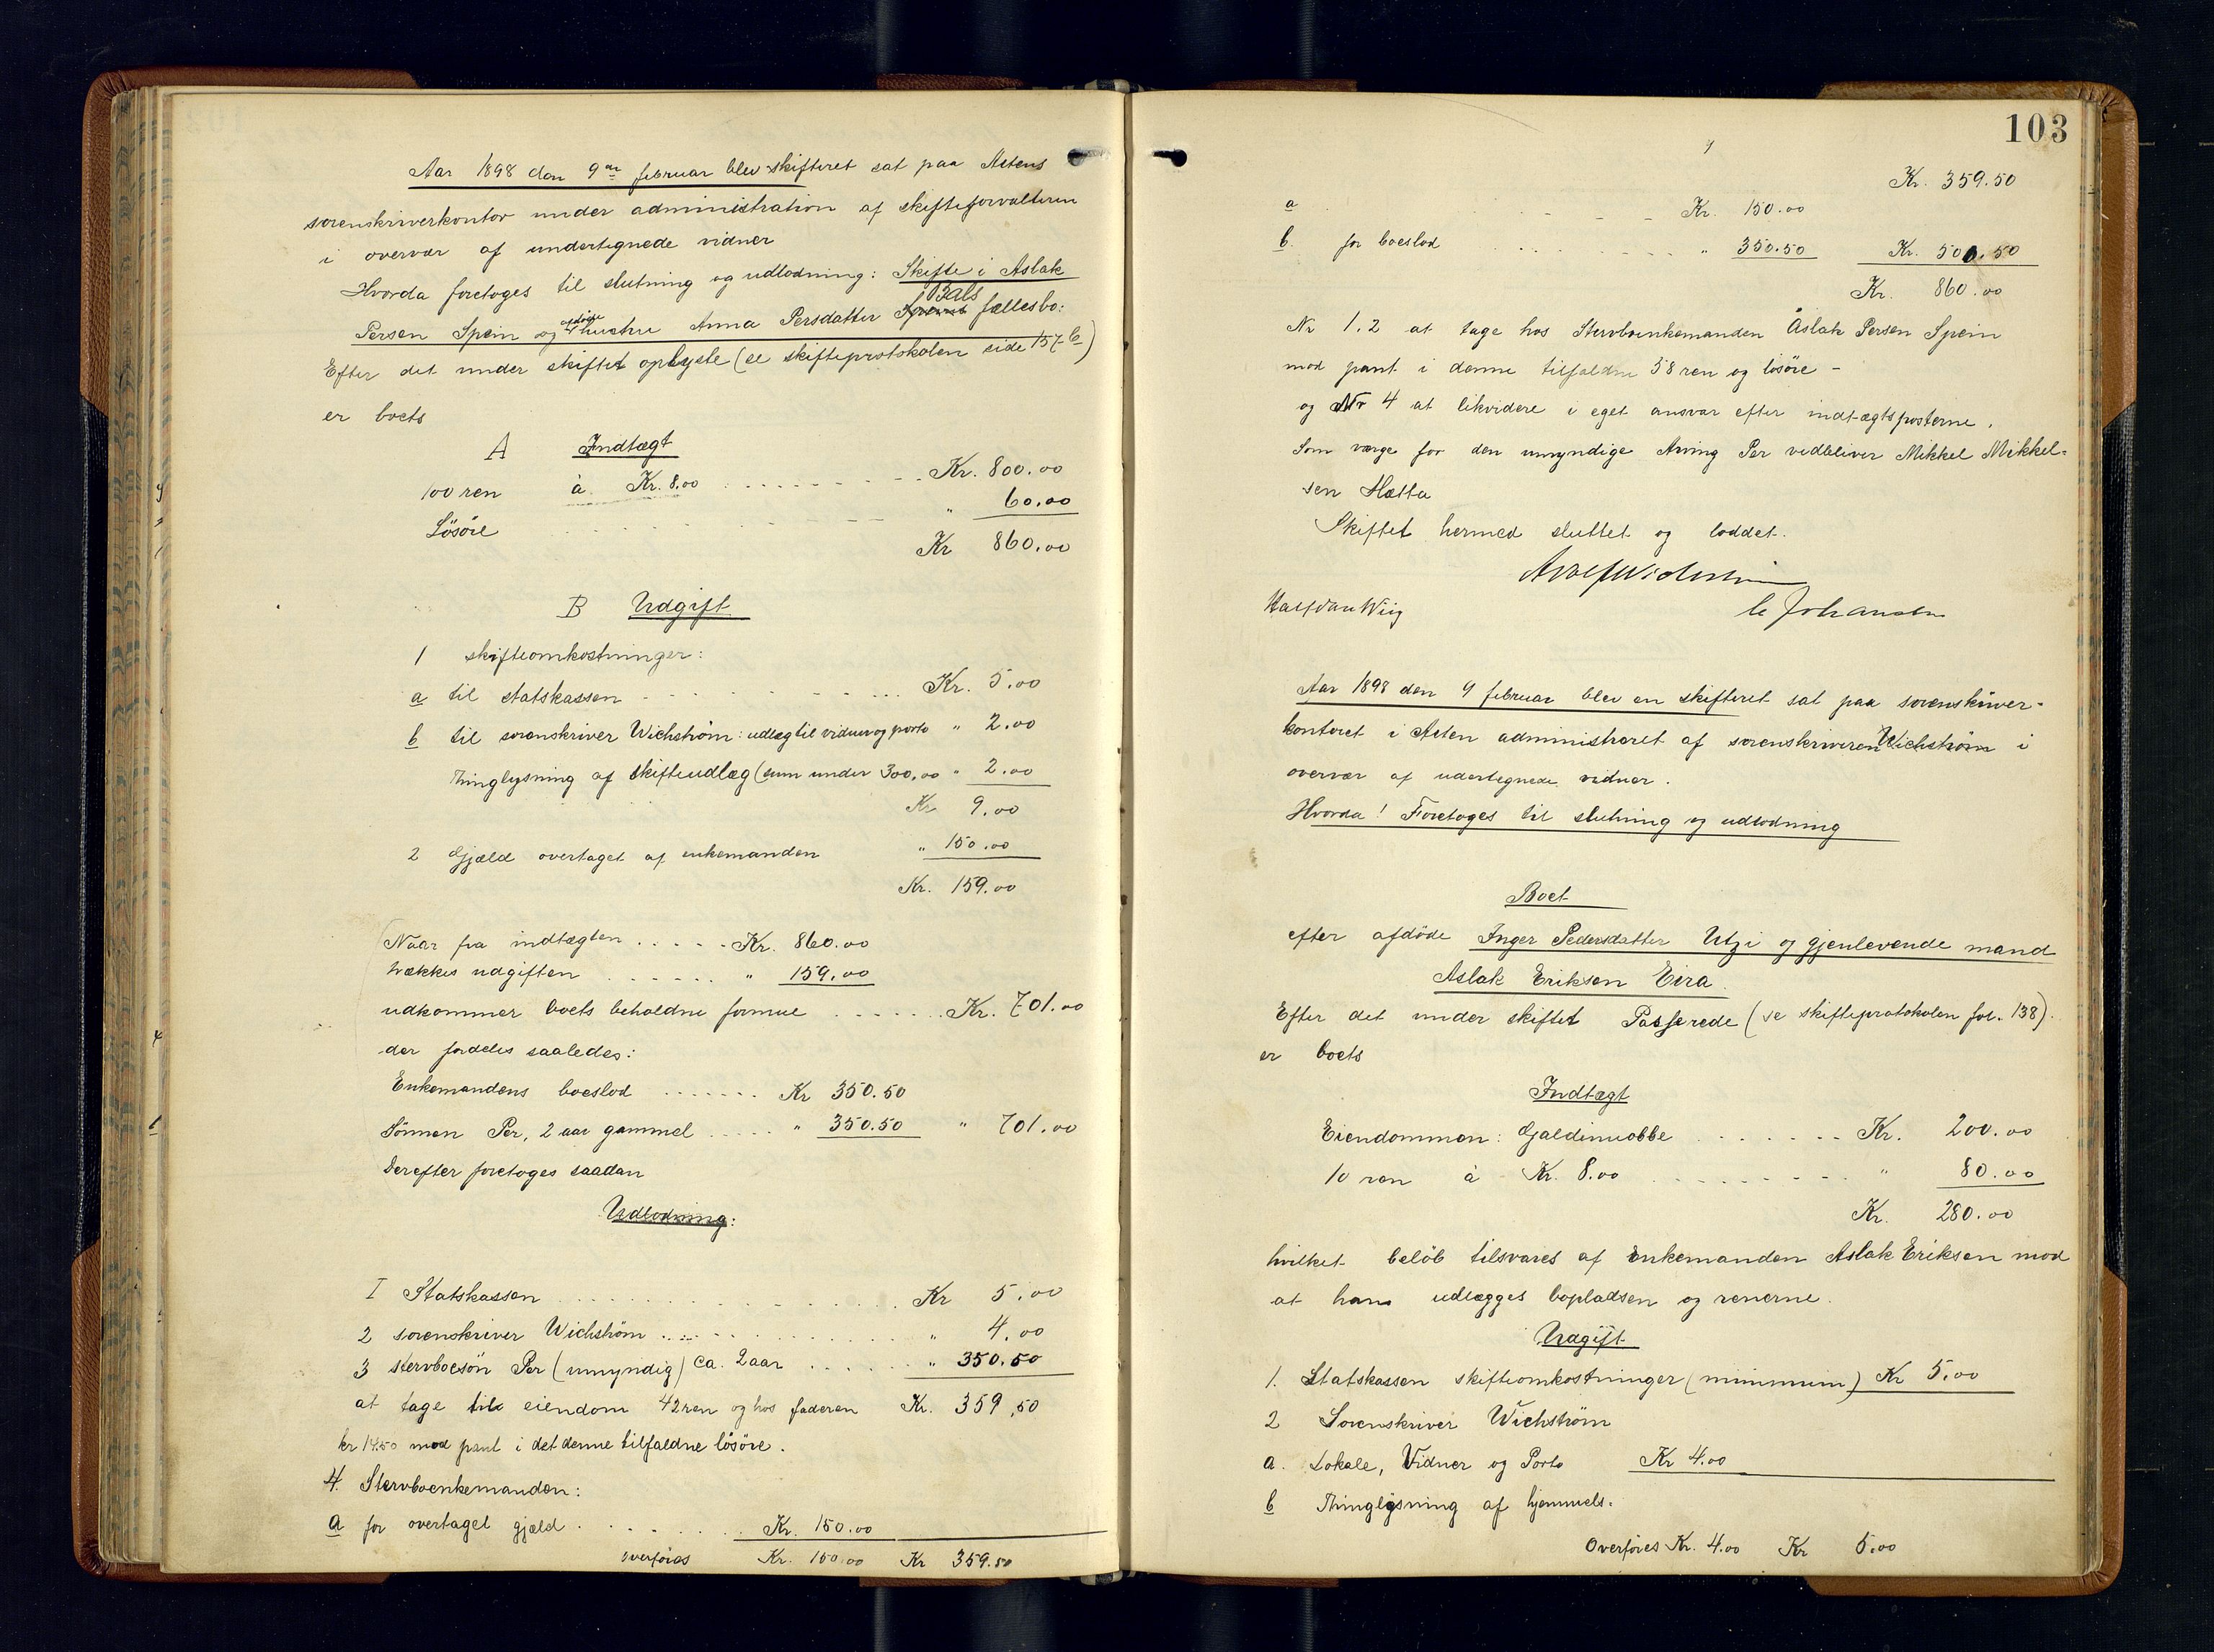 Aar 1898 den 9de februar blev skifteret sat paa Altens
sorenskriverkontor under administration af skifteforvalteren
i overvær af undertegnede vidner
Hvorda foretoges til slutning og udlodning: Skifte i Aslak
Persen Spein og afdøde hustru Anna Persdatter Bals fællesbo:
Efter det under skiftet oplyste (se skifteprotokolen side 157 b)
er boets
A Indtægt
100 ren à Kr. 8.00 . . . . . . . . . Kr. 800.00
Løsøre " 60.00
Kr 860.00
B Udgift
1 skifteomkostninger:
a til statskassen - - - - - - - - - Kr. 5.00
b til sorenskriver Wichstrøm: udlæg til vidner og porto " 2.00
Thinglysning af skifteudlæg (sum under 300,00 " 2.00
Kr 9.00
2 Gjæld overtaget af enkemanden " 150.00
Kr. 159.00
Naar fra indtægten . . . . . Kr. 860.00
trækkes udgiften . . . . . . " 159.00
udkommer boets beholdne formue . . . . . . . Kr. 701.00
der fordeles saaledes:
Enkemandens boeslod . . . . . . . Kr 350.50
Sønnen Per, 2 aar gammel . . . . . " 350.50 " 701.00
Derefter foretoges saadan
Udlodning:
I Statskassen . . . . . . . . . . . Kr 5.00
2 sorenskriver Wichstrøm . . . . . . . . . " 4.00
3 stervboesøn Per (umyndig) ca. 2 aar . . . . . . " 350.50
at tage til eiendom 42 ren og hos faderen Kr. 359.50
kr 14.50 mod pant i det denne tilfaldne løsøre.
4. Stervboenkemanden:
a for overtaget gjæld . . . . . . . . Kr. 150.00
overføres Kr. 150.00 Kr 359.50
103
Kr. 359.50
a - - - Kr. 150.00
b. for boeslod . . . . . . . . " 350.50 Kr. 500.50
Kr. 860.00
Nr 1. 2 at tage hos Stervboenkemanden Aslak Persen Spein
mod pant i denne tilfaldne 58 ren og løsøre -
og Nr 4 at likvidere i eget ansvar efter indtægtsposterne.
Som værge for den umyndige Arving Per vedbliver Mikkel Mikkel=
sen Hætta
Skiftet hermed sluttet og loddet.
Halfdan Wiig C Johansen
Aar 1898 den 9 februar blev en skifteret sat paa sorenskriver-
kontoret i Alten administreret af sorenskriveren Wichstrøm i
overvær af udertegnede vidner.
Hvorda! Foretoges til slutning og udlodning
Boet
efter afdøde Inger Pedersdatter Utzi og gjenlevende mand
Aslak Eriksen Eira.
Efter det under skiftet Passerede (se skifteprotokolen fol. 138).
er boets
Indtægt
Eiendommen: Gjaldinuobbe . . . . . . . Kr. 200.00
10 ren à Kr. 8.00 . . . . . . . . . " 80.00
Kr. 280.00
hvilket beløb tilsvares af Enkemanden Aslak Eriksen mod
at ham udlægges bopladsen og renerne.
Udgift
1. Statskassen skifteomkostninger (minimum) Kr 5.00
2 Sorenskriver Wichstrøm
a. Lokale, Vidner og Porto Kr 4.00
b Thinglysning af hjemmels=
Overføres Kr. 4.00 Kr 5.00